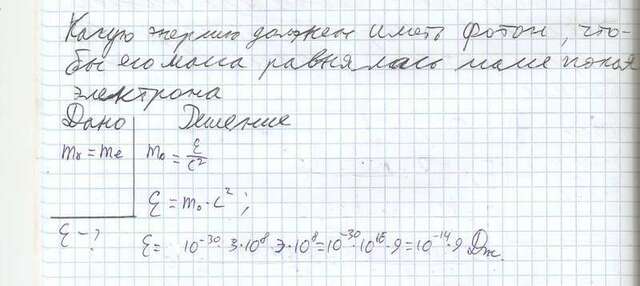 Какую энергию должен иметь фотон, что-
бы его масса равнялась массе покоя
электрона
Дано Решение
mγ = me m₀ = ε/c²
ε = m₀ · c²;
ε - ? ε = 10⁻³⁰ · 3 · 10⁸ · 3 · 10⁸ = 10⁻³⁰ · 10¹⁶ · 9 = 10⁻¹⁴ · 9 Дж.